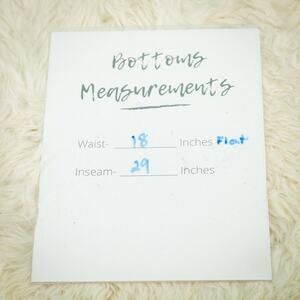 Bottoms
Measurements
Waist- 18 Inches Flat
Inseam- 29 Inches